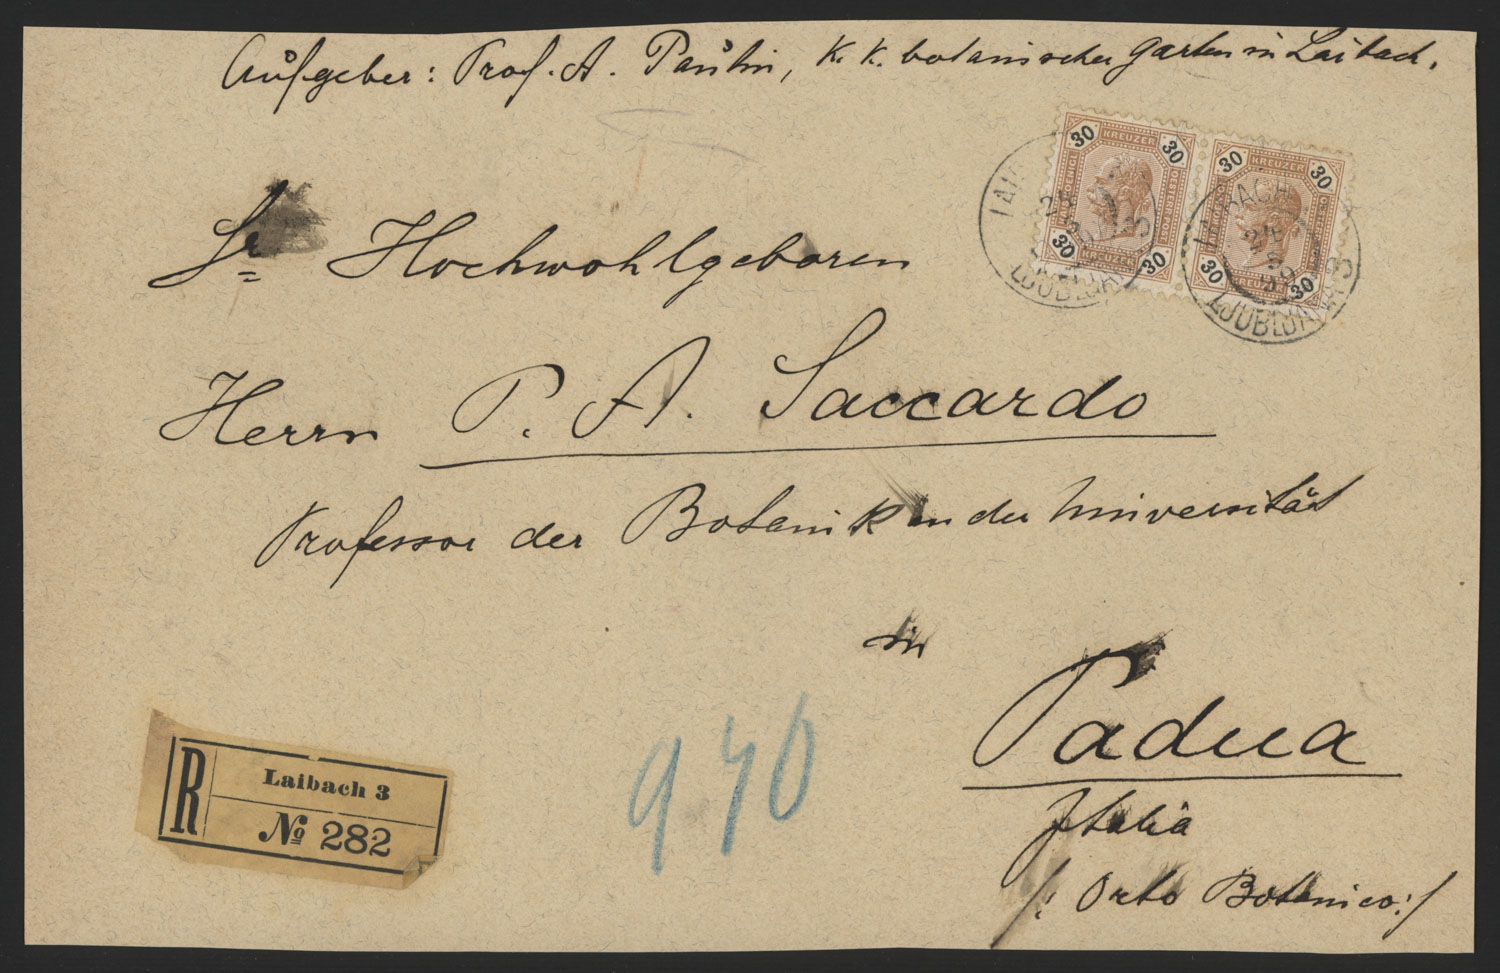 Aufgeber: Prof. A. Paulin, K. K. botanischer Garten in Laibach.
30 KREUZER 30
30 KREUZER 30
30 KREUZER 30
30 KREUZER 30
LAIBACH
24
LJUBLJANA 3
Sr Hochwohlgeboren
Herrn P. A. Saccardo
Professor der Botanik an der Universität
in
Padua
Italia
/: Orto Botanico :/
940
R
Laibach 3
№ 282